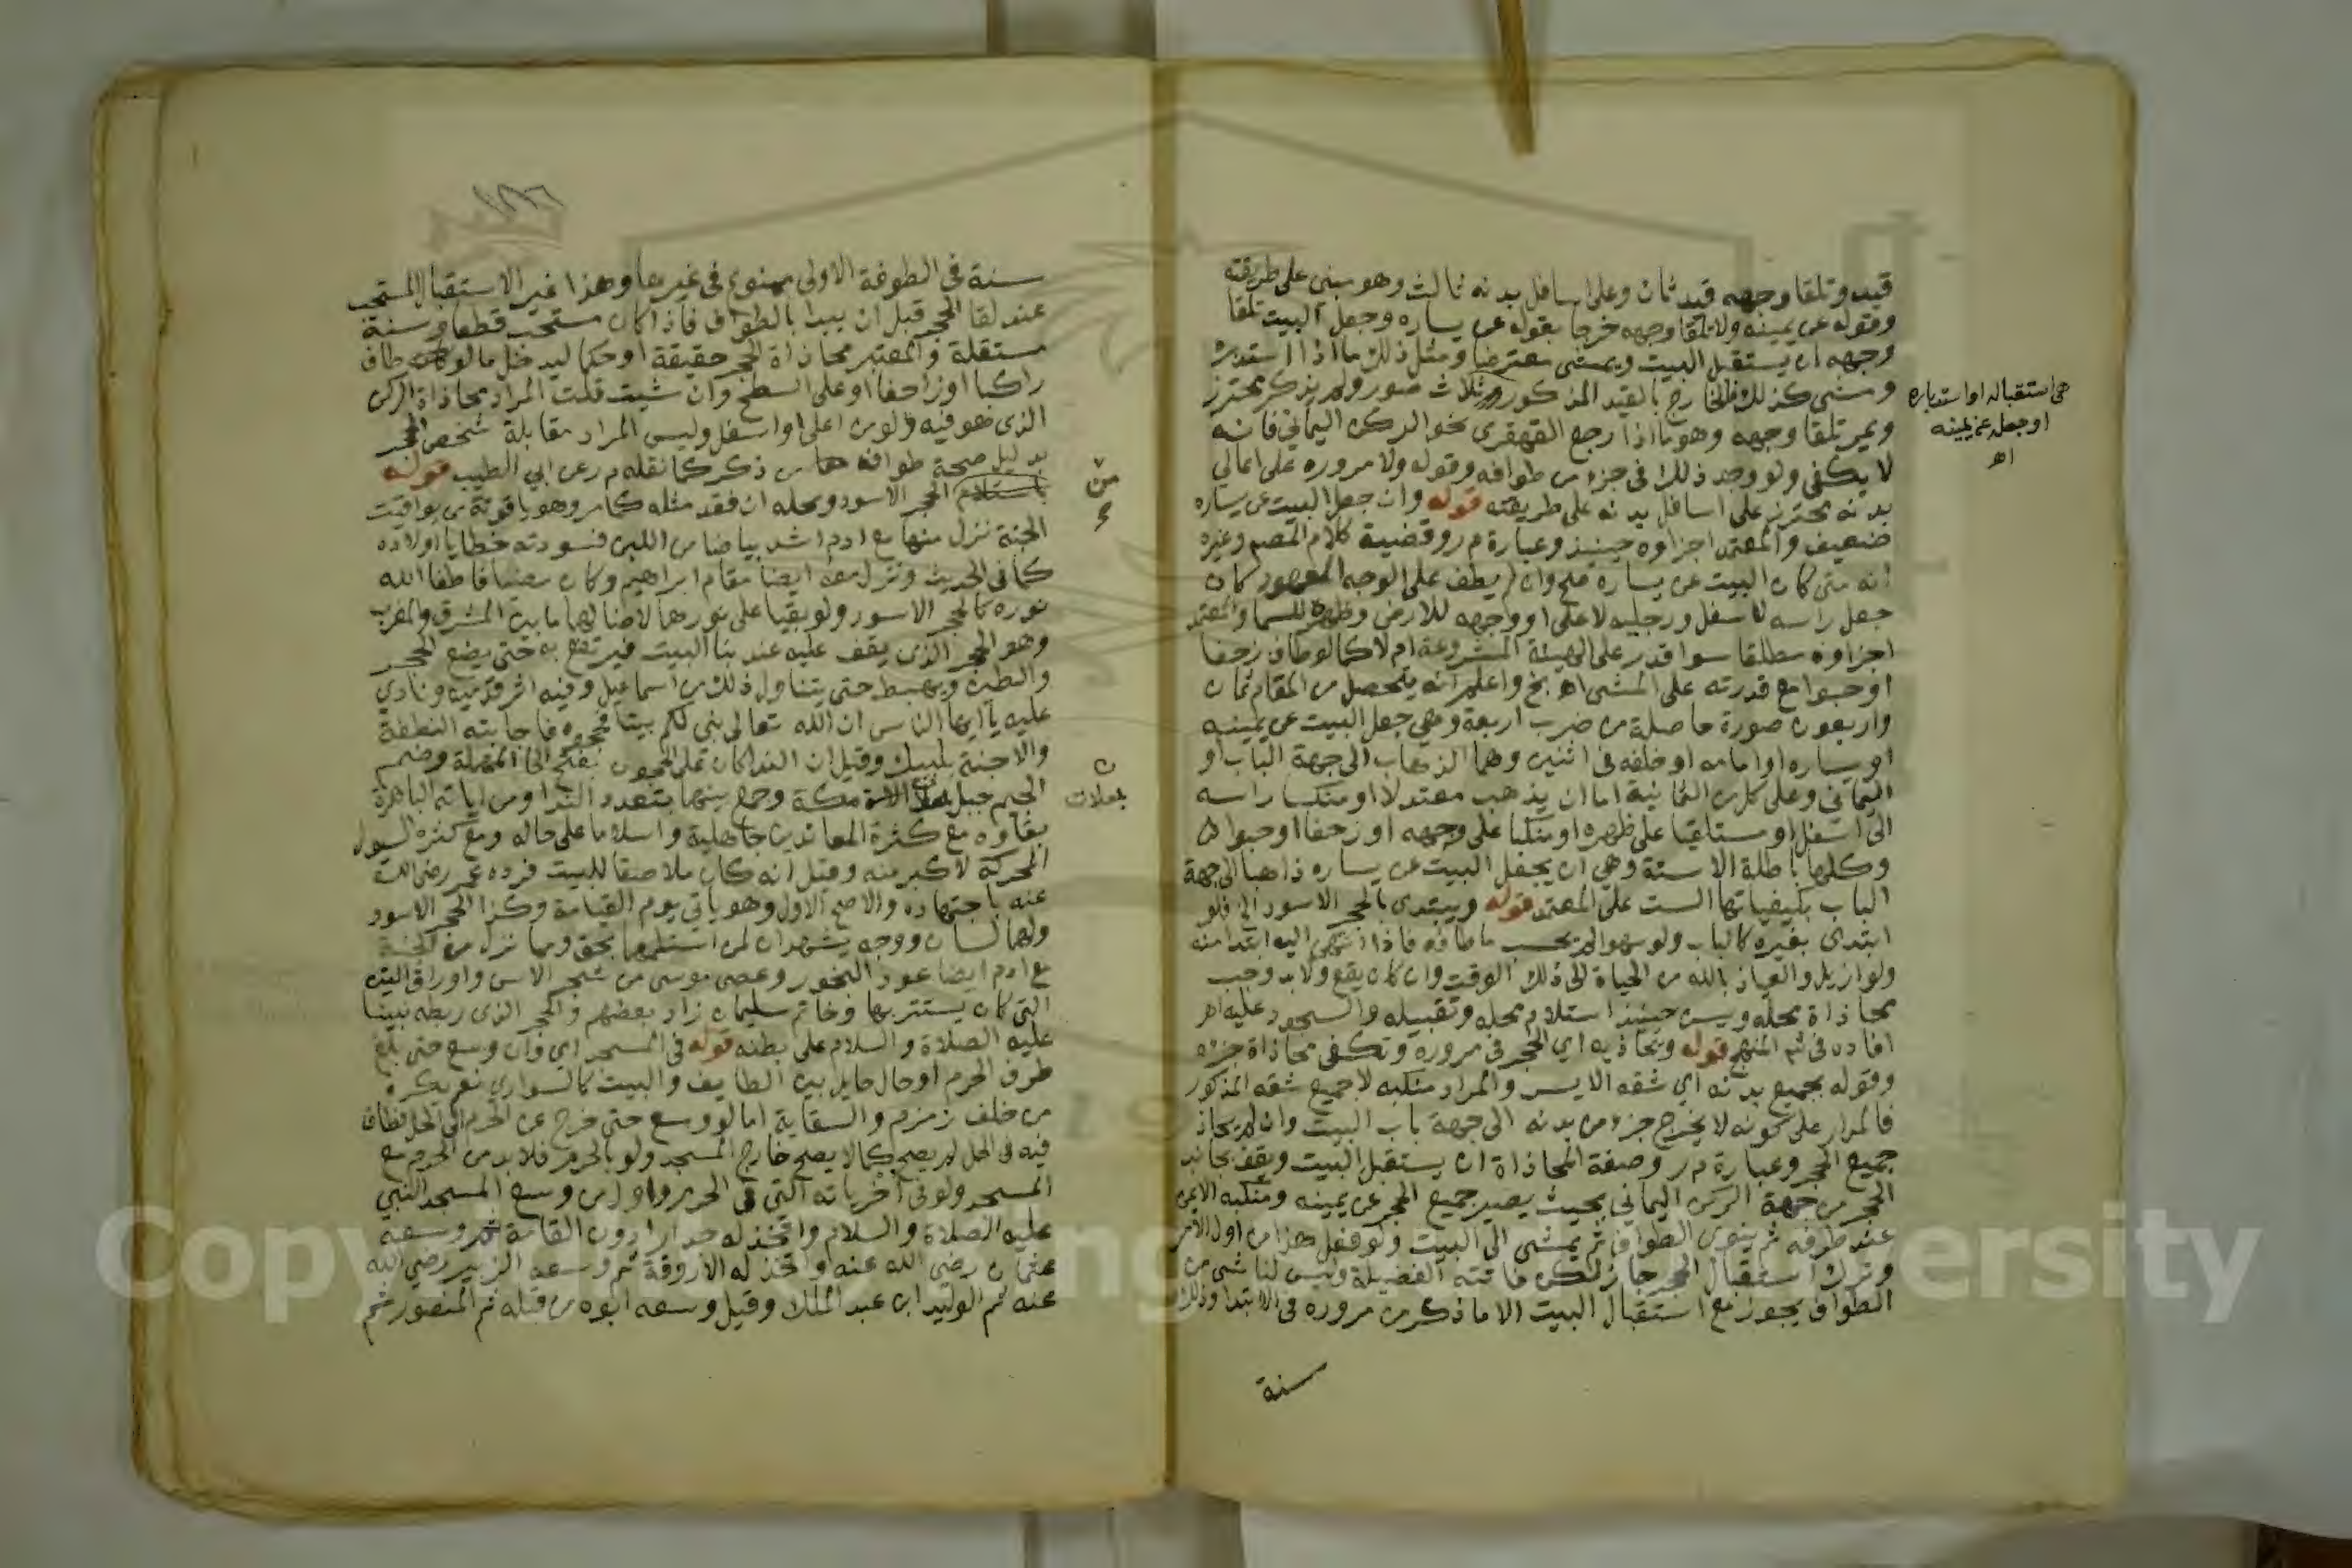 قيد وتلقا وجهه قيد ثان وعلى اسافل بدنه ثالث وهو مبنى على طريقته
وقوله عن يمينه ولا تلقا وجهه خرجا بقوله عن يساره وجعل البيت تلقا
وجهه ان يستقبل البيت ويمشى معترضا ومثل ذلك ما اذا استدبره
ومشى كذلك فالخارج بالقيد المذكور ثلاث صور ولم يذكر محترز
ويمر تلقا وجهه وهو ما اذا رجع القهقرى نحو الركن اليماني فانه
لا يكفى ولو وجد ذلك فى جزء من طوافه وقوله ولا مروره على اعالي
بدنه محترز على اسافل بدنه على طريقته قوله وان جعل البيت عن يساره
ضعيف والمعتمد اجزاوه حينيذ وعبارة م ر وقضية كلام المصم وغيره
انه متى كان البيت عن يساره صح وان لم يطف على الوجه المعهود كان
جعل راسه لاسفل ورجليه لاعلى او وجهه للارض وظهره للسما والمعتمد
اجزاوه مطلقا سوا قدر على الهيئة المشروعة ام لا كما لو طاف زحفا
او حبوا مع قدرته على المشى اهـ بخ واعلم انه يتحصل من المقام ثمان
واربعون صورة حاصلة من ضرب اربعة وهي جعل البيت عن يمينه
او يساره او امامه او خلفه فى اثنين وهما الذهاب الى جهة الباب او
اليماني وعلى كل من الثمانية اما ان يذهب معتدلا او منكسا راسه
الى اسفل او مستلقيا على ظهره او منكبا على وجهه او زحفا او حبوا
وكلها باطلة الا ستة وهي ان يجعل البيت عن يساره ذاهبا الى جهة
الباب بكيفياتها الست على المعتمد قوله ويبتدى بالحجر الاسود الخ فلو
ابتدى بغيره كالباب ولو سهوا لم يحسب ما طافه فاذا انتهى اليه ابتدا منه
ولو ازيل والعياذ بالله من الحياة الى ذلك الوقت وان كان يقع ولا بد وجب
محاذاة محله ويسن حينئذ استلام محله وتقبيله والسجود عليه اهـ
افاده فى شم المنهج قوله ويحاذيه اي الحجر فى مروره وتكفى محاذاة جزء
وقوله بجميع بدنه اي شقه الايسر والمراد منكبه لا جميع شقه المذكور
فالمدار على كونه لا يخرج جزء من بدنه الى جهة باب البيت وان لم يحاذ
جميع الحجر وعبارة م ر وصفة المحاذاة ان يستقبل البيت ويقف بجانب
الحجر من جهة الركن اليماني بحيث يصير جميع الحجر عن يمينه ومنكبه الايمن
عند طرفه ثم ينوى الطواف ثم يمشى الى البيت ولو فعل هذا من اول الامر
وترك استقبال الحجر جاز لكن فاتته الفضيلة وليس لنا شى من
الطواف يجوز مع استقبال البيت الا ما ذكر من مروره فى الابتدا وذلك
سنة
هى استقباله او استدباره
او جعله عن يمينه
اهـ
سنة فى الطوفة الاولى ممنوع فى غيرها وهذا غير الاستقبال المستحب
عند لقا الحجر قبل ان يبدا بالطواف فاذا كان مستحب قطعا وسنة
مستقلة والمعتبر محاذاة الحجر حقيقة او حكما ليدخل ما لو طاف
راكبا او زاحفا او على السطح وان شيت قلت المراد محاذاة الركن
الذى هو فيه ولو من اعلى او اسفل وليس المراد مقابلة شخص الحجر
بدليل صحة طوافه هما من ذكر كما نقله م ر عن ابي الطيب قوله
باستلام الحجر الاسود ومحله ان فقد مثله كما مر وهو ياقوتة من يواقيت
الجنة نزل منها مع ادم اشد بياضا من اللبن فسودته خطايا اولاده
كما فى الحديث ونزل معه ايضا مقام ابراهيم وكان مضيا فاطفا الله
نوره كالحجر الاسود ولو بقيا على نورهما لاضا لهما ما بين المشرق والمغرب
وهو الحجر الذى يقف عليه عند بنا البيت فيرتفع به حتى يضع الحجر
والطين ويهبط حتى يتناول ذلك من اسماعيل وفيه اثر قدميه ونادي
عليه يا ايها الناس ان الله تعالى بنى لكم بيتا فحجوه فاجابته النطفة
والاجنة بلبيك وقيل ان الندا كان على الحجون بفتح الحا المهملة وضم
الجيم جبل مكة وجمع بينهما بتعدد الندا ومن اياته الباهرة
بقاوه مع كثرة المعاندين جاهلية واسلاما على حاله ومع كثره السيول
المحركة لاكبر منه وقيل انه كان ملاصقا للبيت فرده عمر رضى الله
عنه باجتهاده والاصح الاول وهو ياتي يوم القيامة وكذا الحجر الاسود
ولهما لسان ووجه يشهدان لمن استلمهما بحق ومما نزل من الجنة
مع ادم ايضا عود البخور وعصى موسى من شجر الاس واوراق التين
التى كان يستتر بها وخاتم سليمان زاد بعضهم والحجر الذى ربطه نبينا
عليه الصلاة والسلام على بطنه قوله فى المسجد اي وان وسع حتى بلغ
طرف الحرم او حال حايل بين الطايف والبيت كالسواري نعم يكره
من خلف زمزم والسقاية اما لو وسع حتى خرج عن الحرم الى الحل فطاف
فيه فى الحل لم يصح كما لا يصح خارج المسجد ولو بالحرم فلا بد من الحرم مع
المسجد ولو فى اخرياته التى فى الحرم واول من وسع المسجد النبي
عليه الصلاة والسلام واتخذ له جدارا دون القامة ثم وسعه
عثمان رضى الله عنه واتخذ له الاروقة ثم وسعه الزبير رضى الله
عنه ثم الوليد ابن عبد الملك وقيل وسعه ابوه من قبله ثم المنصور ثم
بعلات